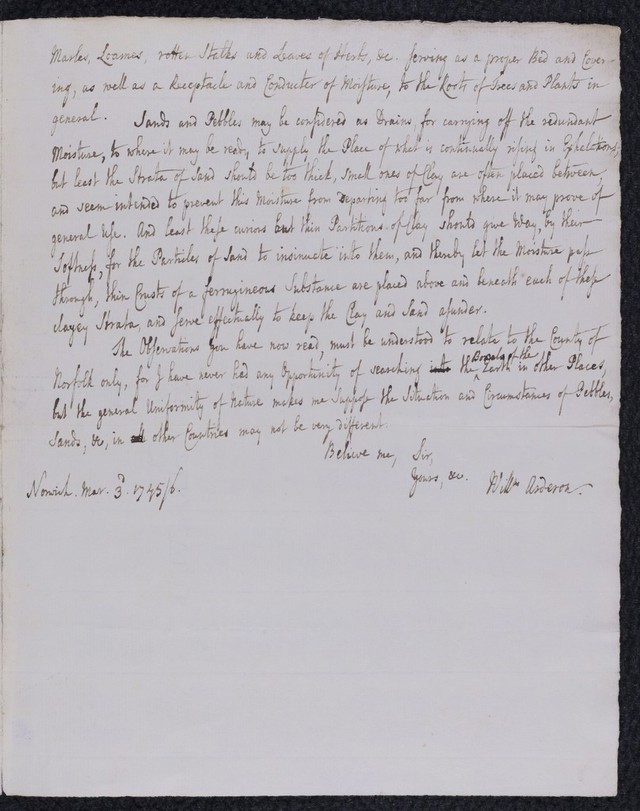 Marles, Loames, rotten Stalks and Leaves of Herbs, &c. serving as a proper Bed and Cover-
ing, as well as a Receptacle and Conducter of Moisture, to the Roots of Trees and Plants in
general. Sands and Pebbles may be considered as Drains, for carrying off the redundant
Moisture, to where it may be ready, to supply the Place of what is continually rising in Exhalations;
but least the Strata of Sand should be too thick, small ones of Clay are often placed between,
and seem intended to prevent this Moisture from Departing too far from where it may prove of
general Use. And least these curious but thin Partitions of Clay should give Way, by their
Softness, for the Particles of Sand to insinuate into them, and thereby let the Moisture pass
through, thin Crusts of a ferrugineous Substance are placed above and beneath each of these
clayey Strata, and serve effectually to keep the Clay and Sand asunder.
The Observations you have now read, must be understood to relate to the County of
Norfolk only, for I have never had any Opportunity of searching into the Bowels of the Earth in other Places,
but the general Uniformity of Nature makes me suppose the Situation and Circumstances of Pebbles,
Sands, &c, in all other Countries may not be very different.
Believe me, Sir,
Yours, &c. Willm Arderon.
Norwich. Mar. 3d. 1745/6.